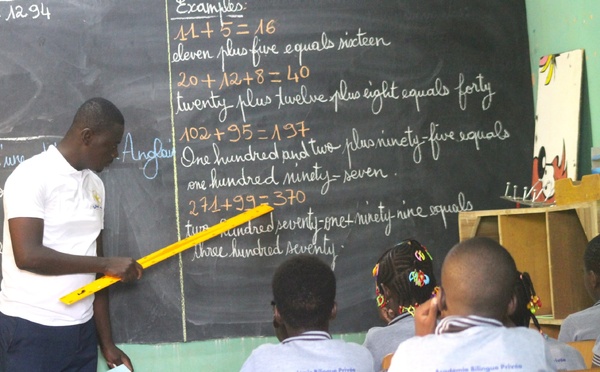 1294
Examples:
11 + 5 = 16
eleven plus five equals sixteen
20 + 12 + 8 = 40
twenty plus twelve plus eight equals forty
102 + 95 = 197
One hundred and two plus ninety-five equals
one hundred ninety-seven.
271 + 99 = 370
two hundred seventy-one + ninety-nine equals
three hundred seventy.
Anglais
Académie Bilingue Privée